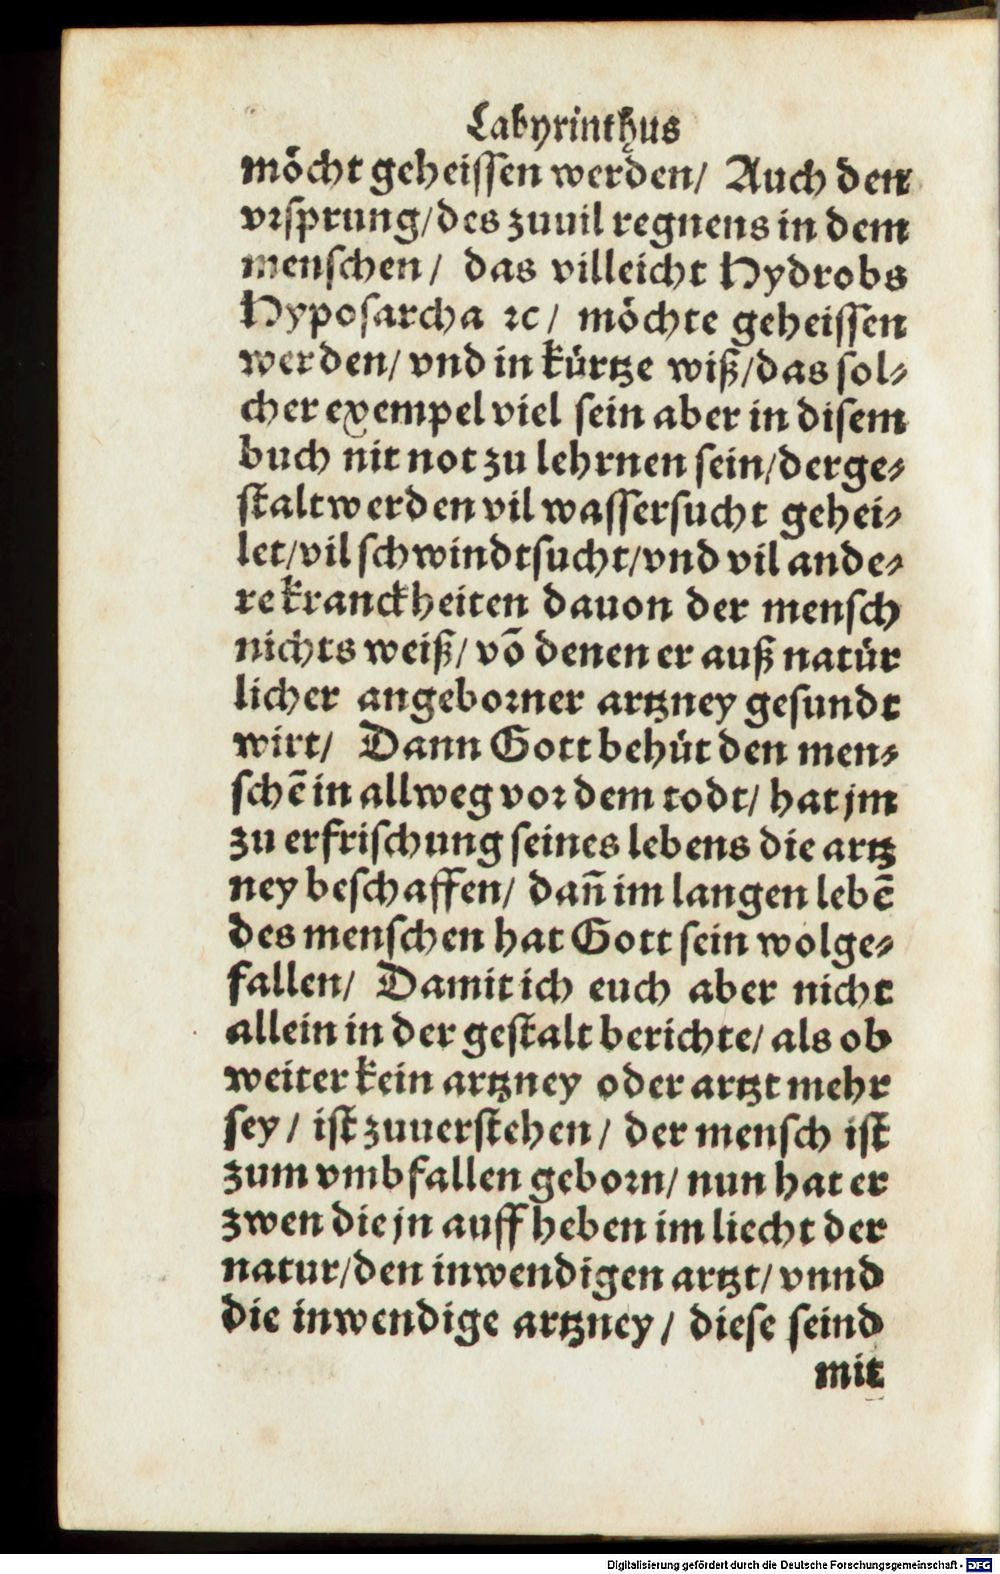 Labyrinthus
möcht geheissen werden/ Auch den
vrsprung/des zuuil regnens in dem
menschen/ das villeicht Hydrobs
Hyposarcha ꝛc/ möchte geheissen
werden/ vnd in kürtze wiß/das sol⸗
cher exempel viel sein aber in disem
buch nit not zu lehrnen sein/derge⸗
stalt werden vil wassersucht gehei⸗
let/vil schwindtsucht/vnd vil ande⸗
re kranckheiten dauon der mensch
nichts weiß/ võ denen er auß natür
licher angeborner artzney gesundt
wirt/ Dann Gott behüt den men⸗
schẽ in allweg vor dem todt/ hat jm
zu erfrischung seines lebens die artz
ney beschaffen/ dañ im langen lebẽ
des menschen hat Gott sein wolge⸗
fallen/ Damit ich euch aber nicht
allein in der gestalt berichte/ als ob
weiter kein artzney oder artzt mehr
sey/ ist zuuerstehen/ der mensch ist
zum vmbfallen geborn/ nun hat er
zwen die jn auff heben im liecht der
natur/den inwendigen artzt/ vnnd
die inwendige artzney/ diese seind
mit
Digitalisierung gefördert durch die Deutsche Forschungsgemeinschaft - DFG